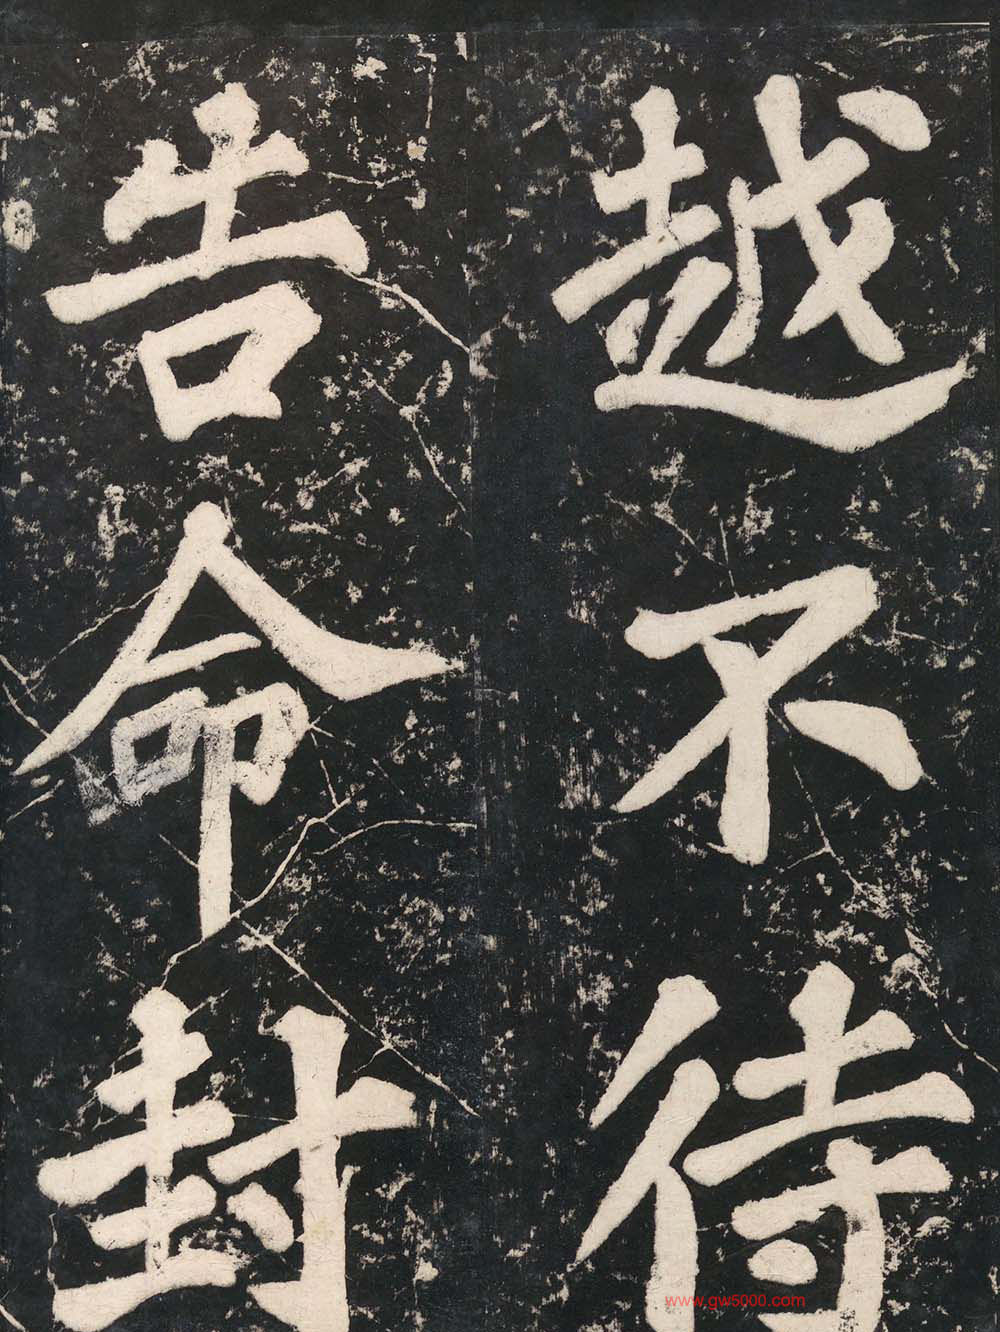 越不待
告命封
www.gw5000.com